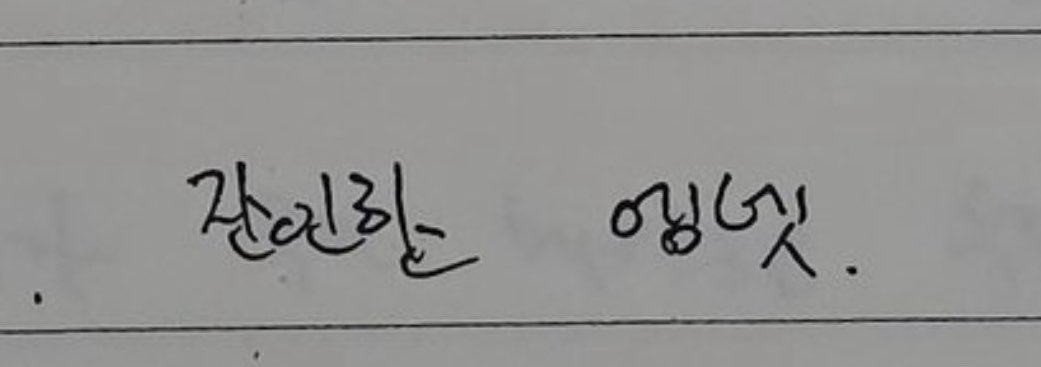 잔인한 엥넷.